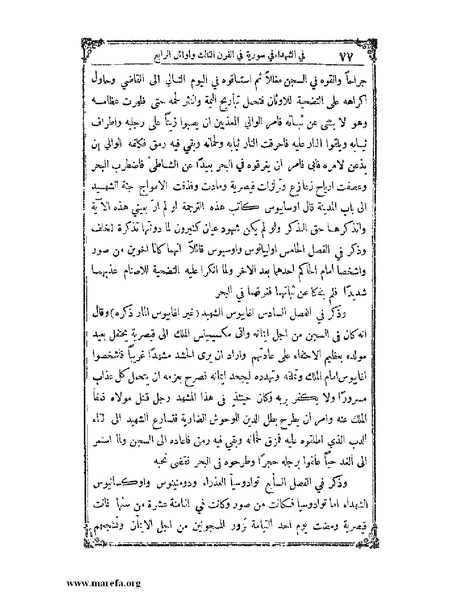 ٧٧ في الشهداء في سورية في القرن الثالث واوائل الرابع
جراحاً والقوه في السجن مغلاًّلا ثم استاقوه في اليوم التالي الى القاضي وحاول
اكراهه على التضحية للاوثان فتحمل تباريح اليمة وانتثر لحمه حتى ظهرت عظامه
وهو لا ينثني عن ثباته فامر الوالي المعذبين ان يصبوا زيتاً على رجليه واطراف
ثيابه ويلقوا النار عليه فاحرقت النار ثيابه ولحمانه وبقي فيه رمق فكلفه الوالي ان
يذعن لامره فابى فامر ان يغرقوه في البحر بعيدًا عن الشاطئ فاضطرب البحر
وعصفت ارياح زعازع وتزلزلت قيصرية ومادت وقذفت الامواج جثة الشهيد
الى باب المدينة قال اوسابيوس كاتب هذه الترجمة لو لم ارَ بعيني هذه الآية
واتذكرها حق التذكر ولو لم يكن شهود عيان كثيرون لما دونتها تذكرة للخلف
وذكر في الفصل الخامس اولبيانوس واوسيوس قائلاً انهما كانا اخوين من صور
واشخصا امام الحاكم احدهما بعد الاخر ولما انكرا عليه التضحية للاصنام عذبهما
شديدًا فلم ينفكا عن ثباتهما فغرقهما في البحر
وذكر في الفصل السادس اغابيوس الشهيد (غير اغابيوس المار ذكره) وقال
انه كان في السجن من اجل ايمانه واتى مكسيمينس الملك الى قيصرية يحتفل بعيد
مولده بعظيم الاحتفاء على عادتهم واراد ان يرى الحشد مشهدًا غريباً فاشخصوا
اغابيوس امام الملك وتملقه وتهدده ليجحد ايمانه فصرح بعزمه ان يتحمل كل عذاب
مسرورًا ولا يكفر بربه وكان حينئذٍ في هذا المشهد رجل قتل مولاه فعفا
الملك عنه وامر ان يطرح بطل الدين للوحوش الضارية فتسارع الشهيد الى لقاء
الدب الذي اطلقوه عليه فمزق لحمانه وبقي فيه رمق فاعاده الى السجن ولما استمر
الى الغد حيًّا علقوا برجله حجرًا وطرحوه في البحر فقضى نحبه
وذكر في الفصل السابع توادوسيا العذراء ودومنينوس واوكسانتيوس
الشهداء اما توادوسيا فكانت من صور وكانت في الثامنة عشرة من سنها فاتت
قيصرية ومضت يوم احد القيامة تزور المسجونين من اجل الايمان وتشجعهم
www.marefa.org